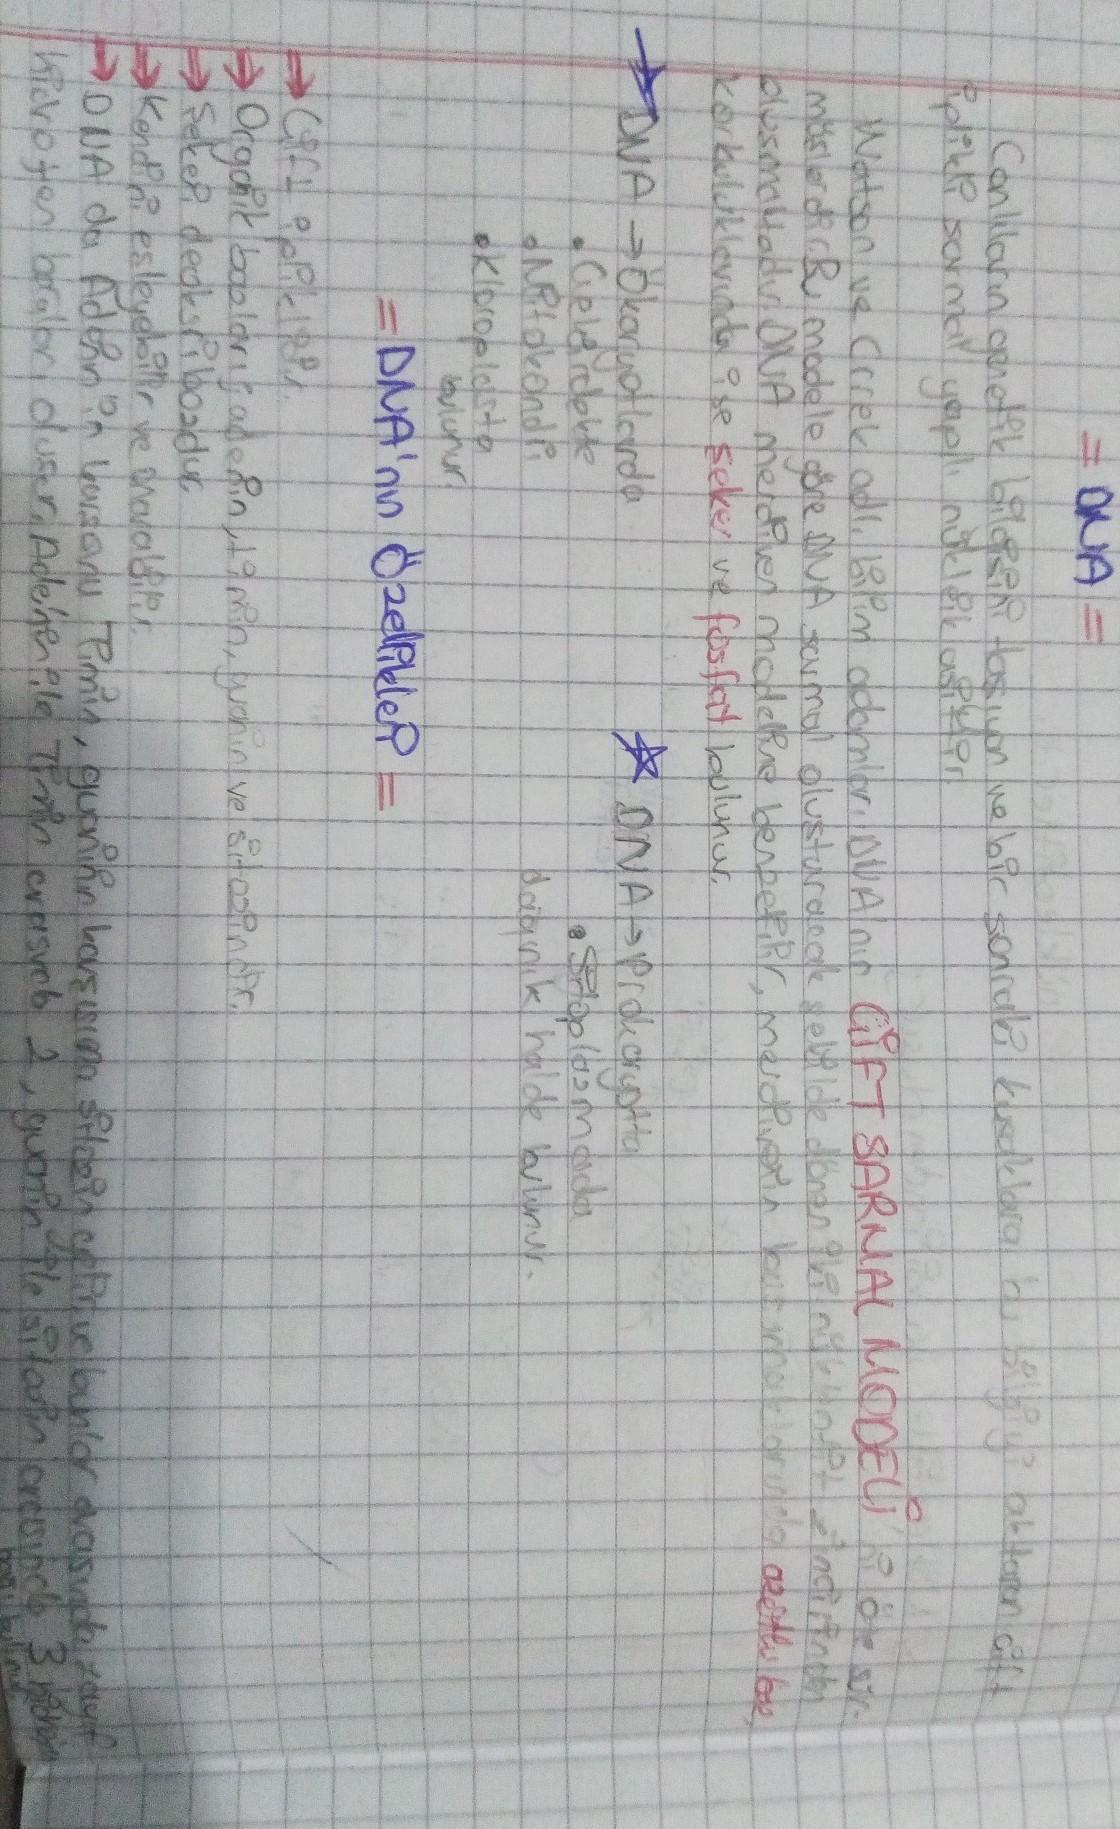 = DNA =
Canlıların genetik bilgisini taşıyan ve bir sonraki kuşaklara bu bilgiyi aktaran çift
iplikli sarmal yapılı nükleik asittir.
Watson ve Crick adlı bilim adamları DNA'nın ÇİFT SARMAL MODELİ'ni öne sür-
müşlerdir. Bu modele göre DNA sarmal oluşturacak şekilde dönen iki nükleotit zincirinden
oluşmaktadır. DNA merdiven modeline benzetilir, merdivenin basamaklarında azotlu baz,
korkuluklarında ise şeker ve fosfat bulunur.
→ DNA → Ökaryotlarda
• Çekirdekte
• Mitokondri
• Kloroplasta
bulunur.
☆ DNA → Prokaryotta
• Sitoplazmada
dağınık halde bulunur.
= DNA'nın Özellikleri =
→ Çift ipliklidir.
→ Organik bazları; adenin, timin, guanin ve sitozindir.
→ Şekeri deoksiribozdur.
→ Kendini eşleyebilir ve onarabilir.
→ DNA da Adenin'in karşısına Timin, guaninin karşısına sitozin gelir ve bunlar arasında zayıf
hidrojen bağları oluşur. Adenin ile Timin arasında 2, guanin ile sitozin arasında 3 hidrojen
bağı bulunur.